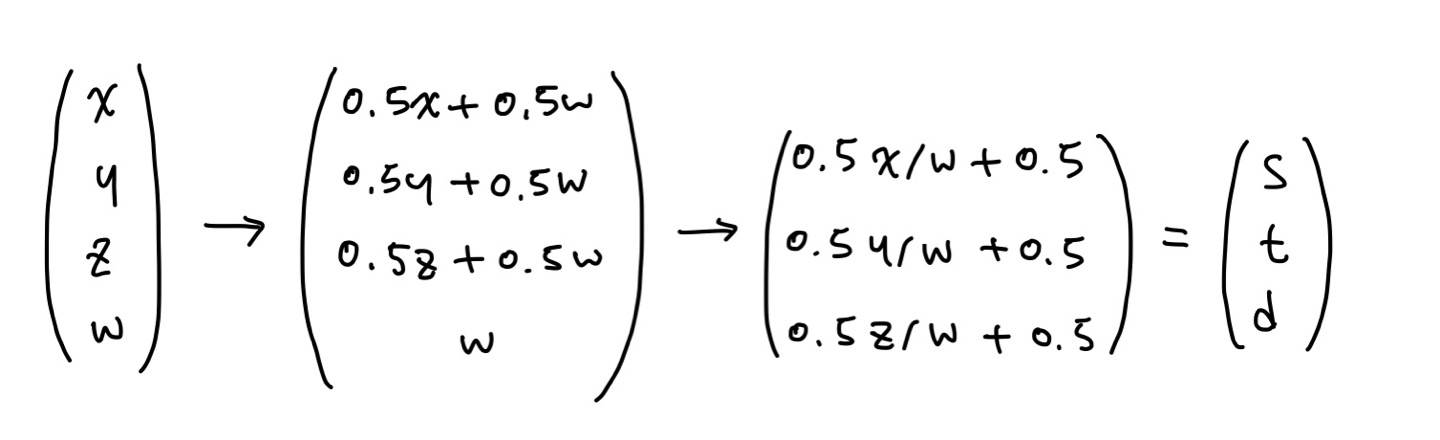 (x y z w) → (0.5x + 0.5w 0.5y + 0.5w 0.5z + 0.5w w) → (0.5 x/w + 0.5 0.5 y/w + 0.5 0.5 z/w + 0.5) = (s t d)